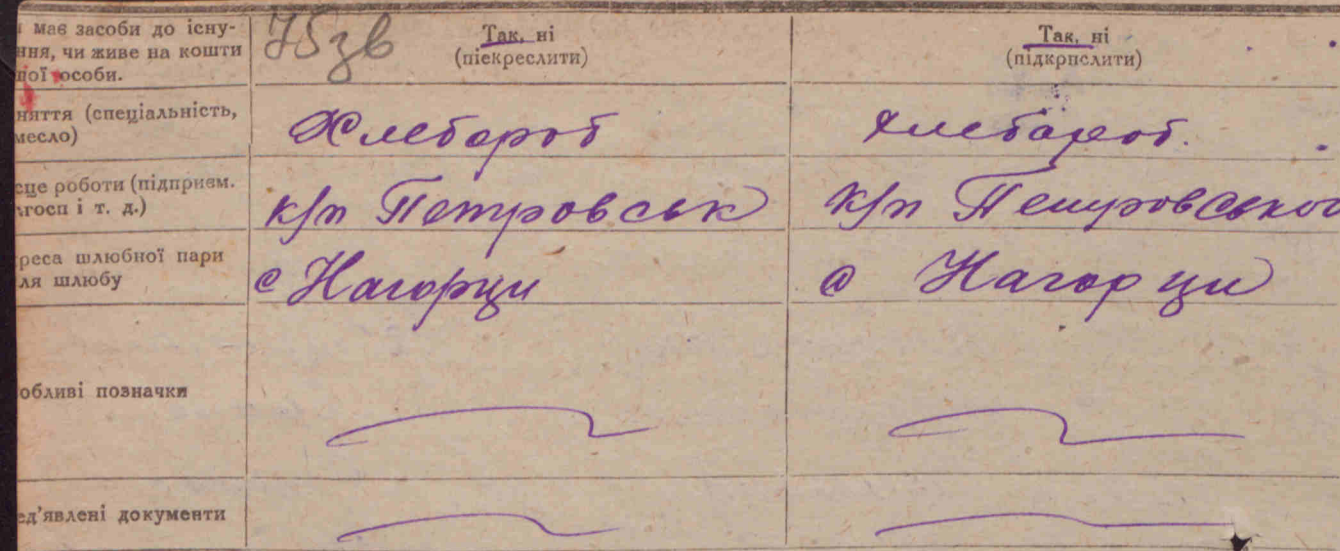 має засоби до існу-
ння, чи живе на кошти
ної особи.
75зв
Так, ні
(піекреслити)
Так, ні
(підкрпслити)
няття (спеціальність,
месло)
Хлебороб
хлебороб.
сце роботи (підприєм.
госп і т. д.)
к/п Петровськ
к/п Петровського
реса шлюбної пари
ля шлюбу
с Нагорци
с Нагорци
обливі позначки
ед'явлені документи